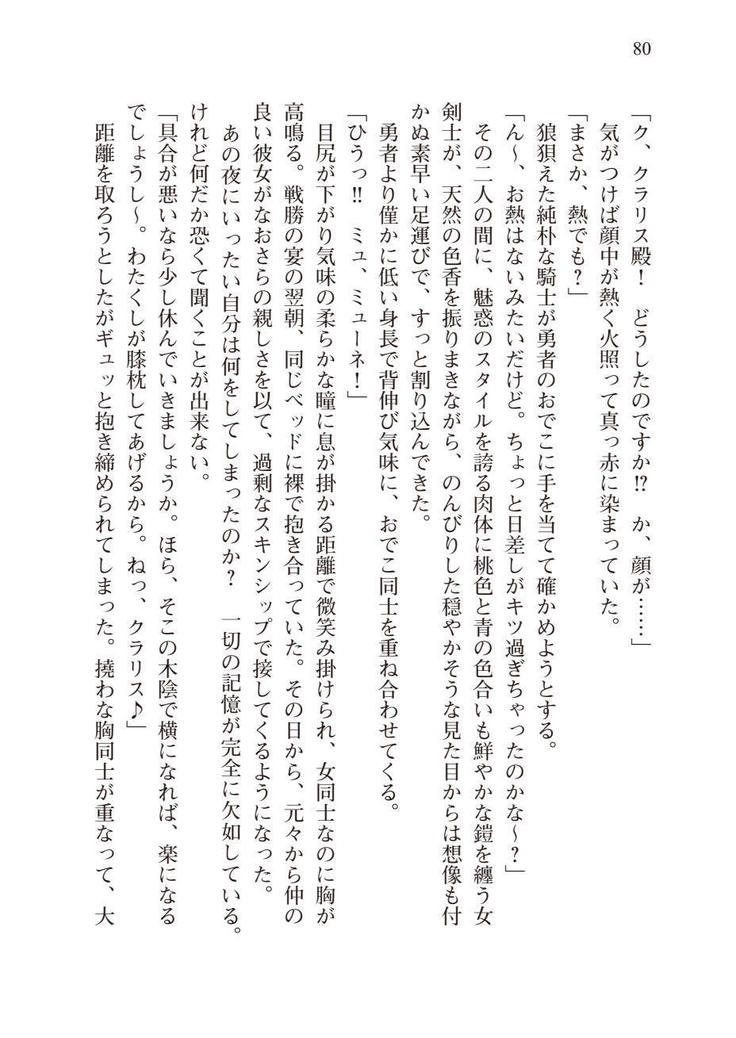 80
「ク、クラリス殿！　どうしたのですか!?　か、顔が……」
　気がつけば顔中が熱く火照って真っ赤に染まっていた。
「まさか、熱でも？」
　狼狽えた純朴な騎士が勇者のおでこに手を当てて確かめようとする。
「ん～、お熱はないみたいだけど。ちょっと日差しがキツ過ぎちゃったのかな～？」
　その二人の間に、魅惑のスタイルを誇る肉体に桃色と青の色合いも鮮やかな鎧を纏う女
剣士が、天然の色香を振りまきながら、のんびりした穏やかそうな見た目からは想像も付
かぬ素早い足運びで、すっと割り込んできた。
　勇者より僅かに低い身長で背伸び気味に、おでこ同士を重ね合わせてくる。
「ひうっ!!　ミュ、ミューネ！」
　目尻が下がり気味の柔らかな瞳に息が掛かる距離で微笑み掛けられ、女同士なのに胸が
高鳴る。戦勝の宴の翌朝、同じベッドに裸で抱き合っていた。その日から、元々から仲の
良い彼女がなおさらの親しさを以て、過剰なスキンシップで接してくるようになった。
　あの夜にいったい自分は何をしてしまったのか？　一切の記憶が完全に欠如している。
けれど何だか恐くて聞くことが出来ない。
「具合が悪いなら少し休んでいきましょうか。ほら、そこの木陰で横になれば、楽になる
でしょうし～。わたくしが膝枕してあげるから。ねっ、クラリス♪」
　距離を取ろうとしたがギュッと抱き締められてしまった。撓わな胸同士が重なって、大